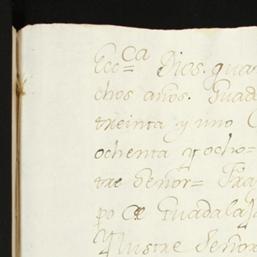 Ecc.ca Dios. gua
chos años. Guad
treinta y uno
ochenta y ocho=
tre Señor= Fra
po de Guadalaj
Yllustre Señor